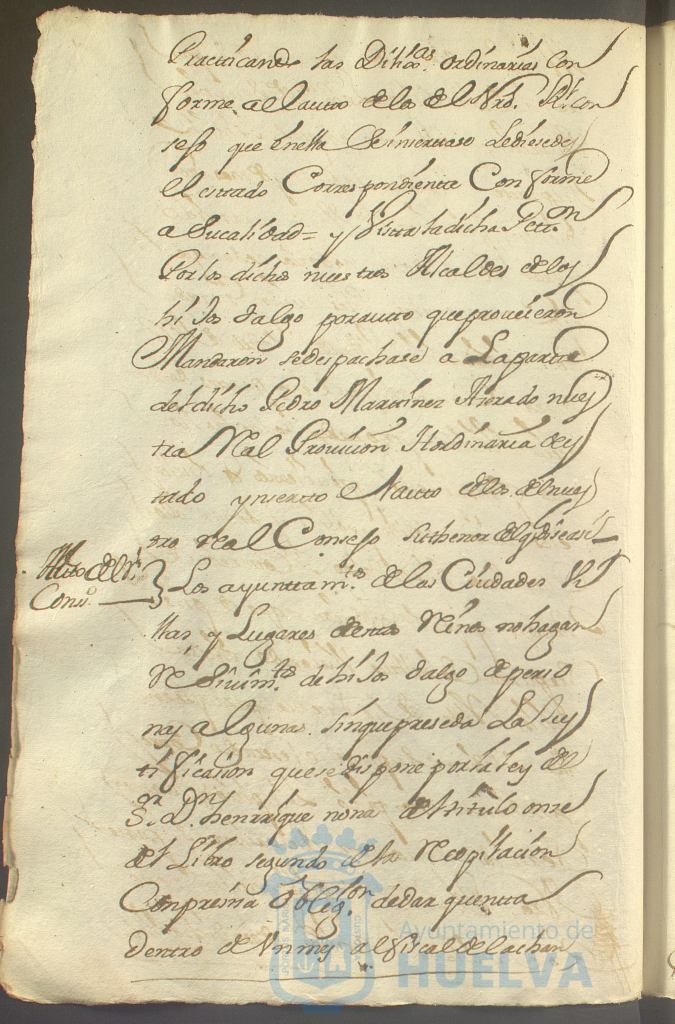 Practicando las Dilixas. ordinarias Con
forme al lauto delos del Nro. Rl. con
sejo que enella Seinsertaso Sediesedes
el estado Correspondiente Conforme
a Sucalidad = y Vista la dicha Petton.
Por los dichos nuestros Alcaldes delos
hijos dalgo porauto queproveieron
Mandaron sedespachase a Laparte
deldicho Pedro Martinez nues
tra Real Provision Hordinaria des
tado ynserto Elauto delos delnues
tro real Consejo suthenor
Auto del Rl.
Conso.
Los ayuntamtos. de las Ciudades Vi
llas y Lugares destos Reinos nohagan
Resivimtos. de hijos dalgo de perso
nas algunas sinquepreseda La Jus
tificasion quesedispone porla ley del
Sor. Dn. henrrique nona deltitulo onse
del Libro segundo dela recopilasion
Conpresisa obligon. dedar quenta
dentro de Vnmes al fiscal dela chan
Ayuntamiento de
HUELVA